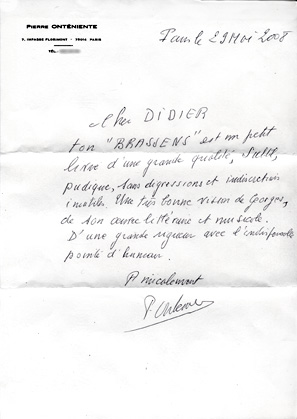 PIERRE ONTÉNIENTE
7, IMPASSE FLORIMONT - 75014 PARIS
TÉL.
Paris le 29 Mai 2008
Cher DIDIER
ton "BRASSENS" est un petit
livre d'une grande qualité, subtil,
pudique, sans digressions et indiscrétions
inutiles. Une très bonne vision de Georges,
de son œuvre littéraire et musicale.
D'une grande rigueur avec l'indispensable
pointe d'humour.
Amicalement
P. Onteniente